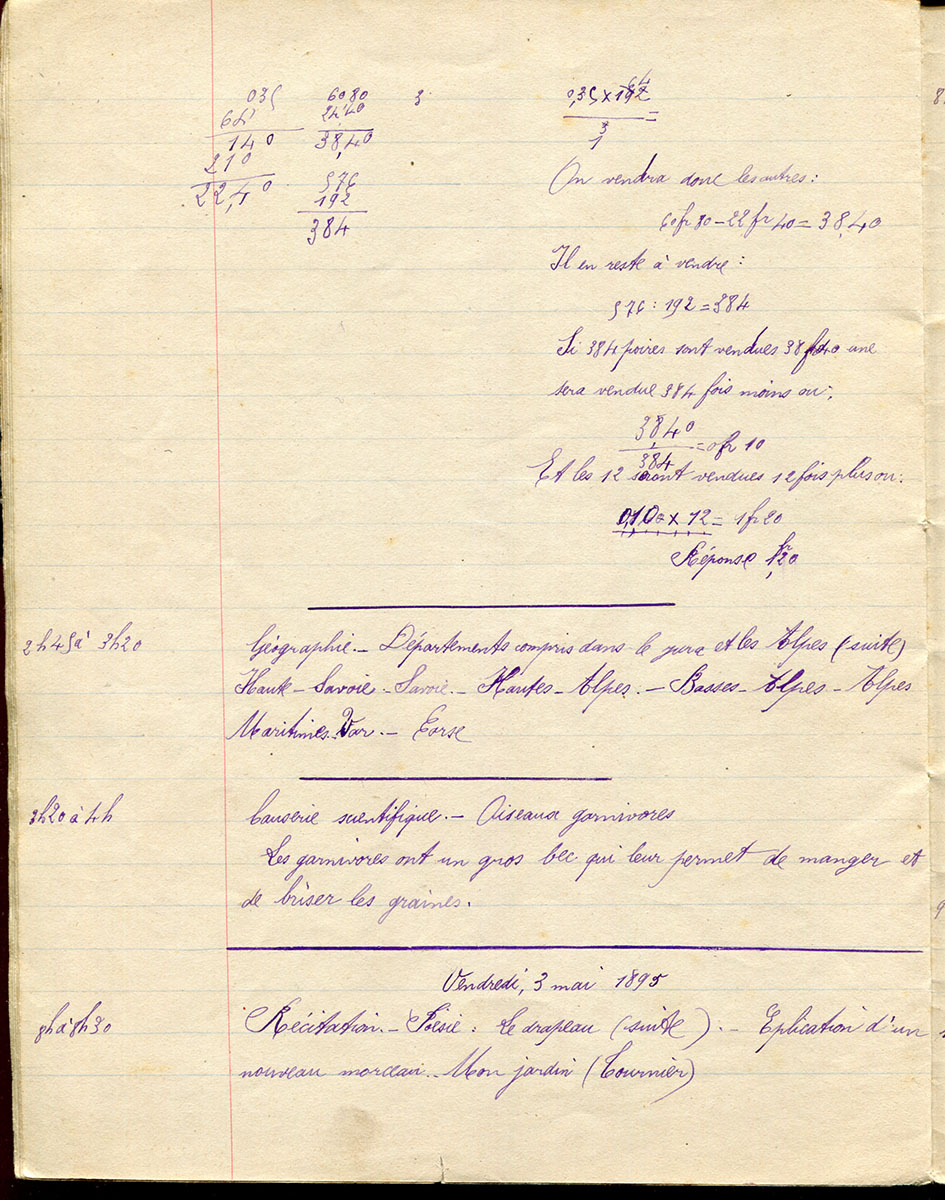 035
64
140
210
22,40
6080
2240
38,40
576
192
384
3
64
0,35 x 192
3
1
=
On vendra donc les autres :
60fr 80 – 22 fr 40 = 38,40
Il en reste à vendre :
576 : 192 = 384
Si 384 poires sont vendues 38f40 une
sera vendue 384 fois moins ou :
38,40
384
= 0fr 10
Et les 12 seront vendues 12 fois plus ou :
0,10 x 12 = 1fr 20
Réponse 1fr,20
2h45 à 3h20
Géographie. – Départements compris dans le jura et les Alpes (suite)
Haute – Savoie – Savoie. – Hautes – Alpes. – Basses – Alpes – Alpes
Maritimes. Var. – Corse
3h20 à 4h
Causerie scientifique. – Oiseaux garnivores
Les garnivores ont un gros bec qui leur permet de manger et
de briser les graines.
Vendredi, 3 mai 1895
8h à 8h30
Récitation. – Poésie : Le drapeau (suite). – Eplication d'un
nouveau morceau. Mon jardin (Tournier)